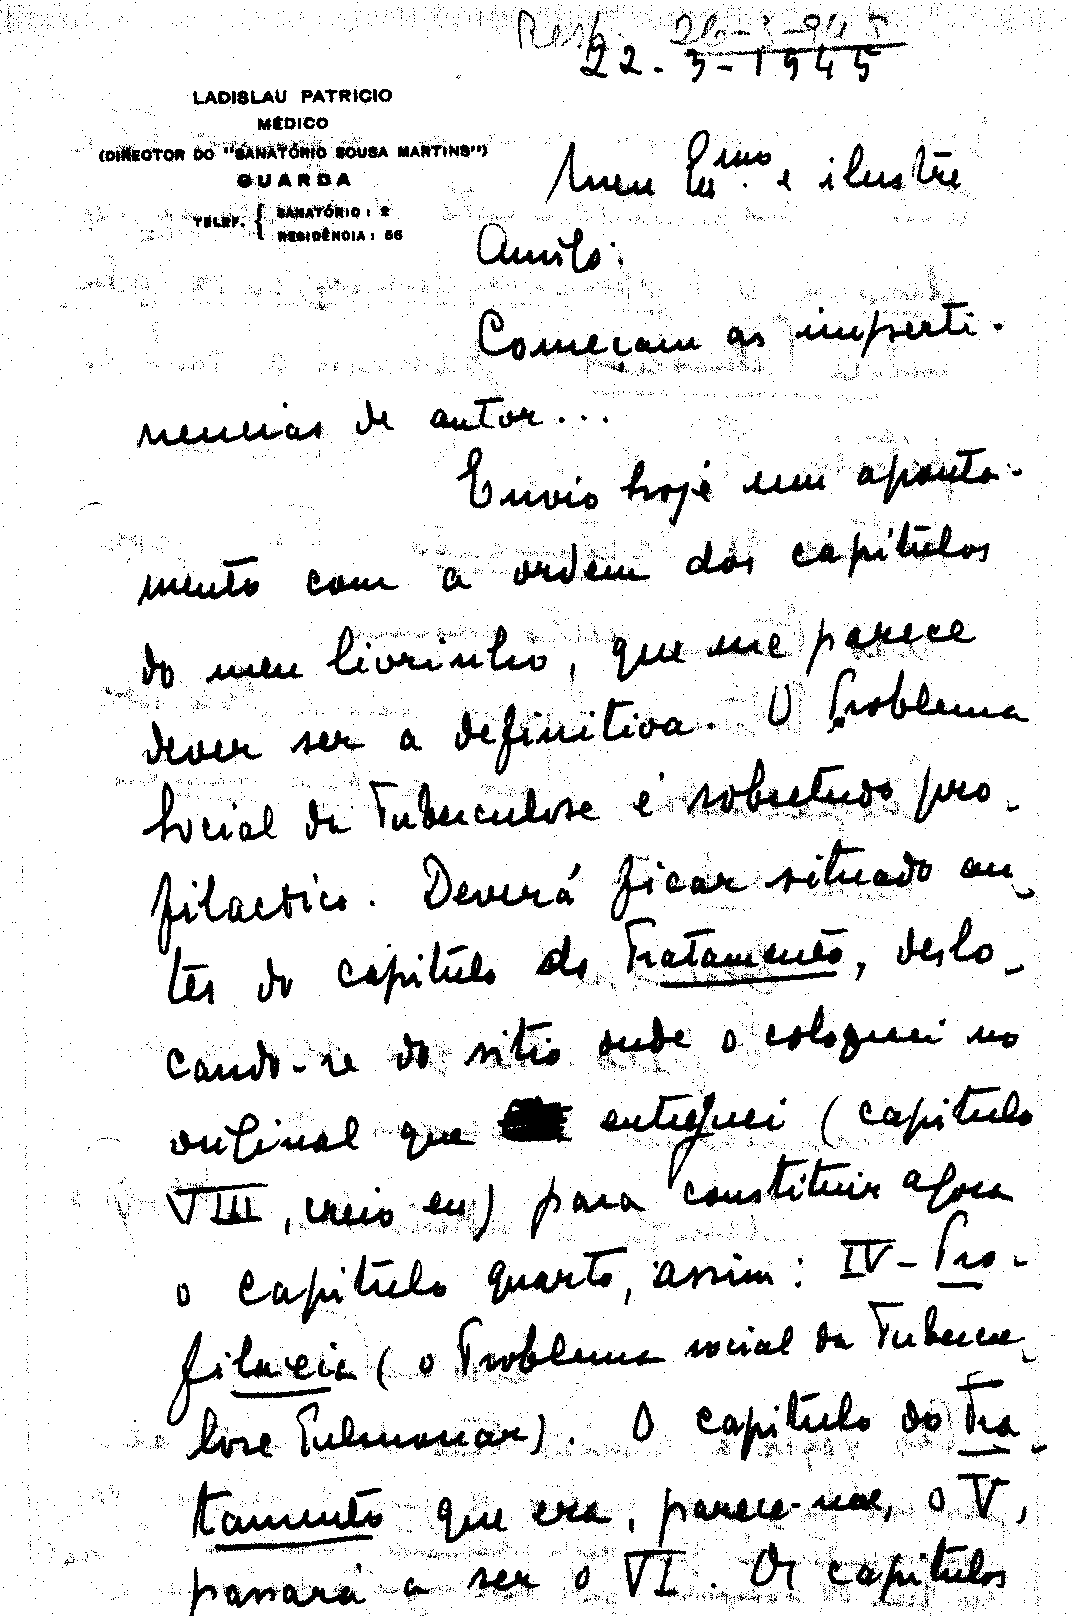 Resp. 26-3-945
22-3-1945
LADISLAU PATRICIO
MÉDICO
(DIRECTOR DO "SANATÓRIO SOUSA MARTINS")
GUARDA
TELEF. { SANATÓRIO: 2
RESIDÊNCIA: 56
Meu Ex.mo e ilustre
Amigo:
Começam as imperti-
nencias de autor...
Envio hoje um aponta-
mento com a ordem dos capítulos
do meu livrinho, que me parece
dever ser a definitiva. O Problema
Social da Tuberculose é sobretudo pro-
filactico. Deverá ficar situado an-
tes do capitulo do Tratamento, deslo-
cando-se do sitio onde o coloquei no
original que entreguei (capitulo
VIII, creio eu) para constituir agora
o capitulo quarto, assim: IV - Pro-
filaxia (o Problema social da Tubercu-
lose Pulmonar). O capitulo do Tra-
tamento que era, parece-me, o V,
passará a ser o VI. Os capitulos